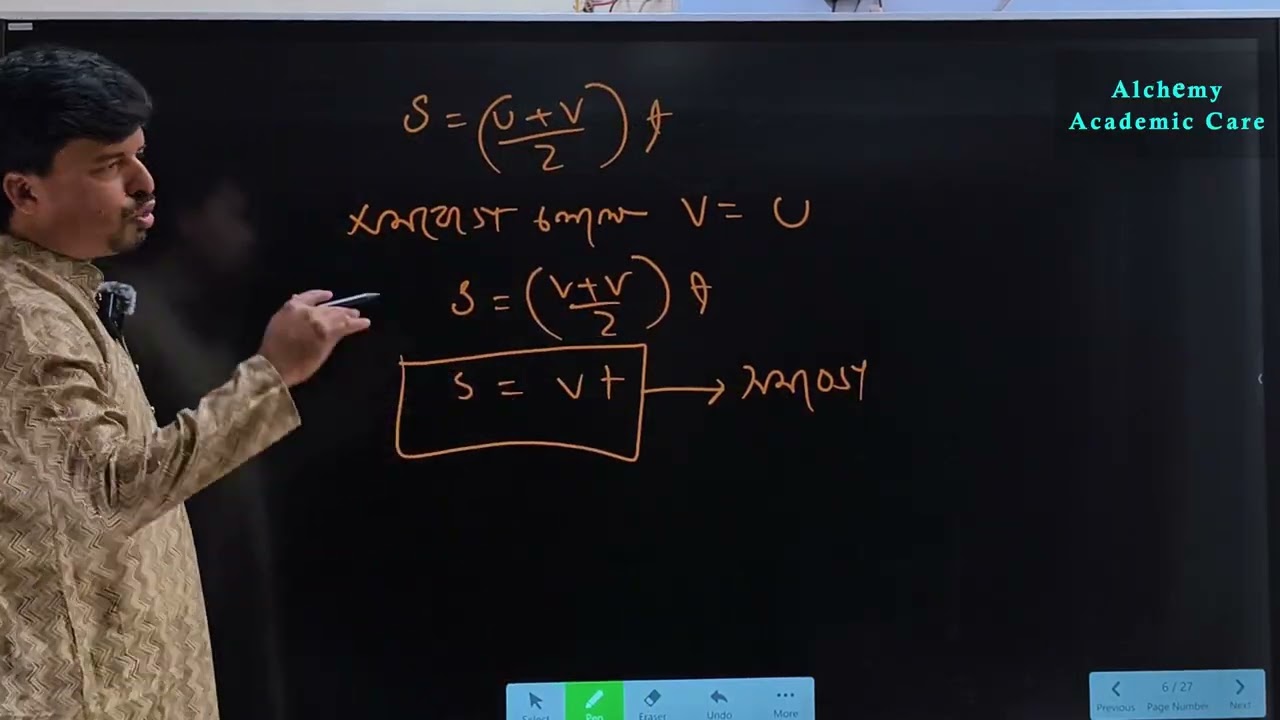 Alchemy
Academic Care
S = (U + V / 2) t
সমবেগে চললে V = U
S = (V + V / 2) t
S = vt → সমবেগে
Select
Pen
Eraser
Undo
More
Previous
6 / 27
Page Number
Next